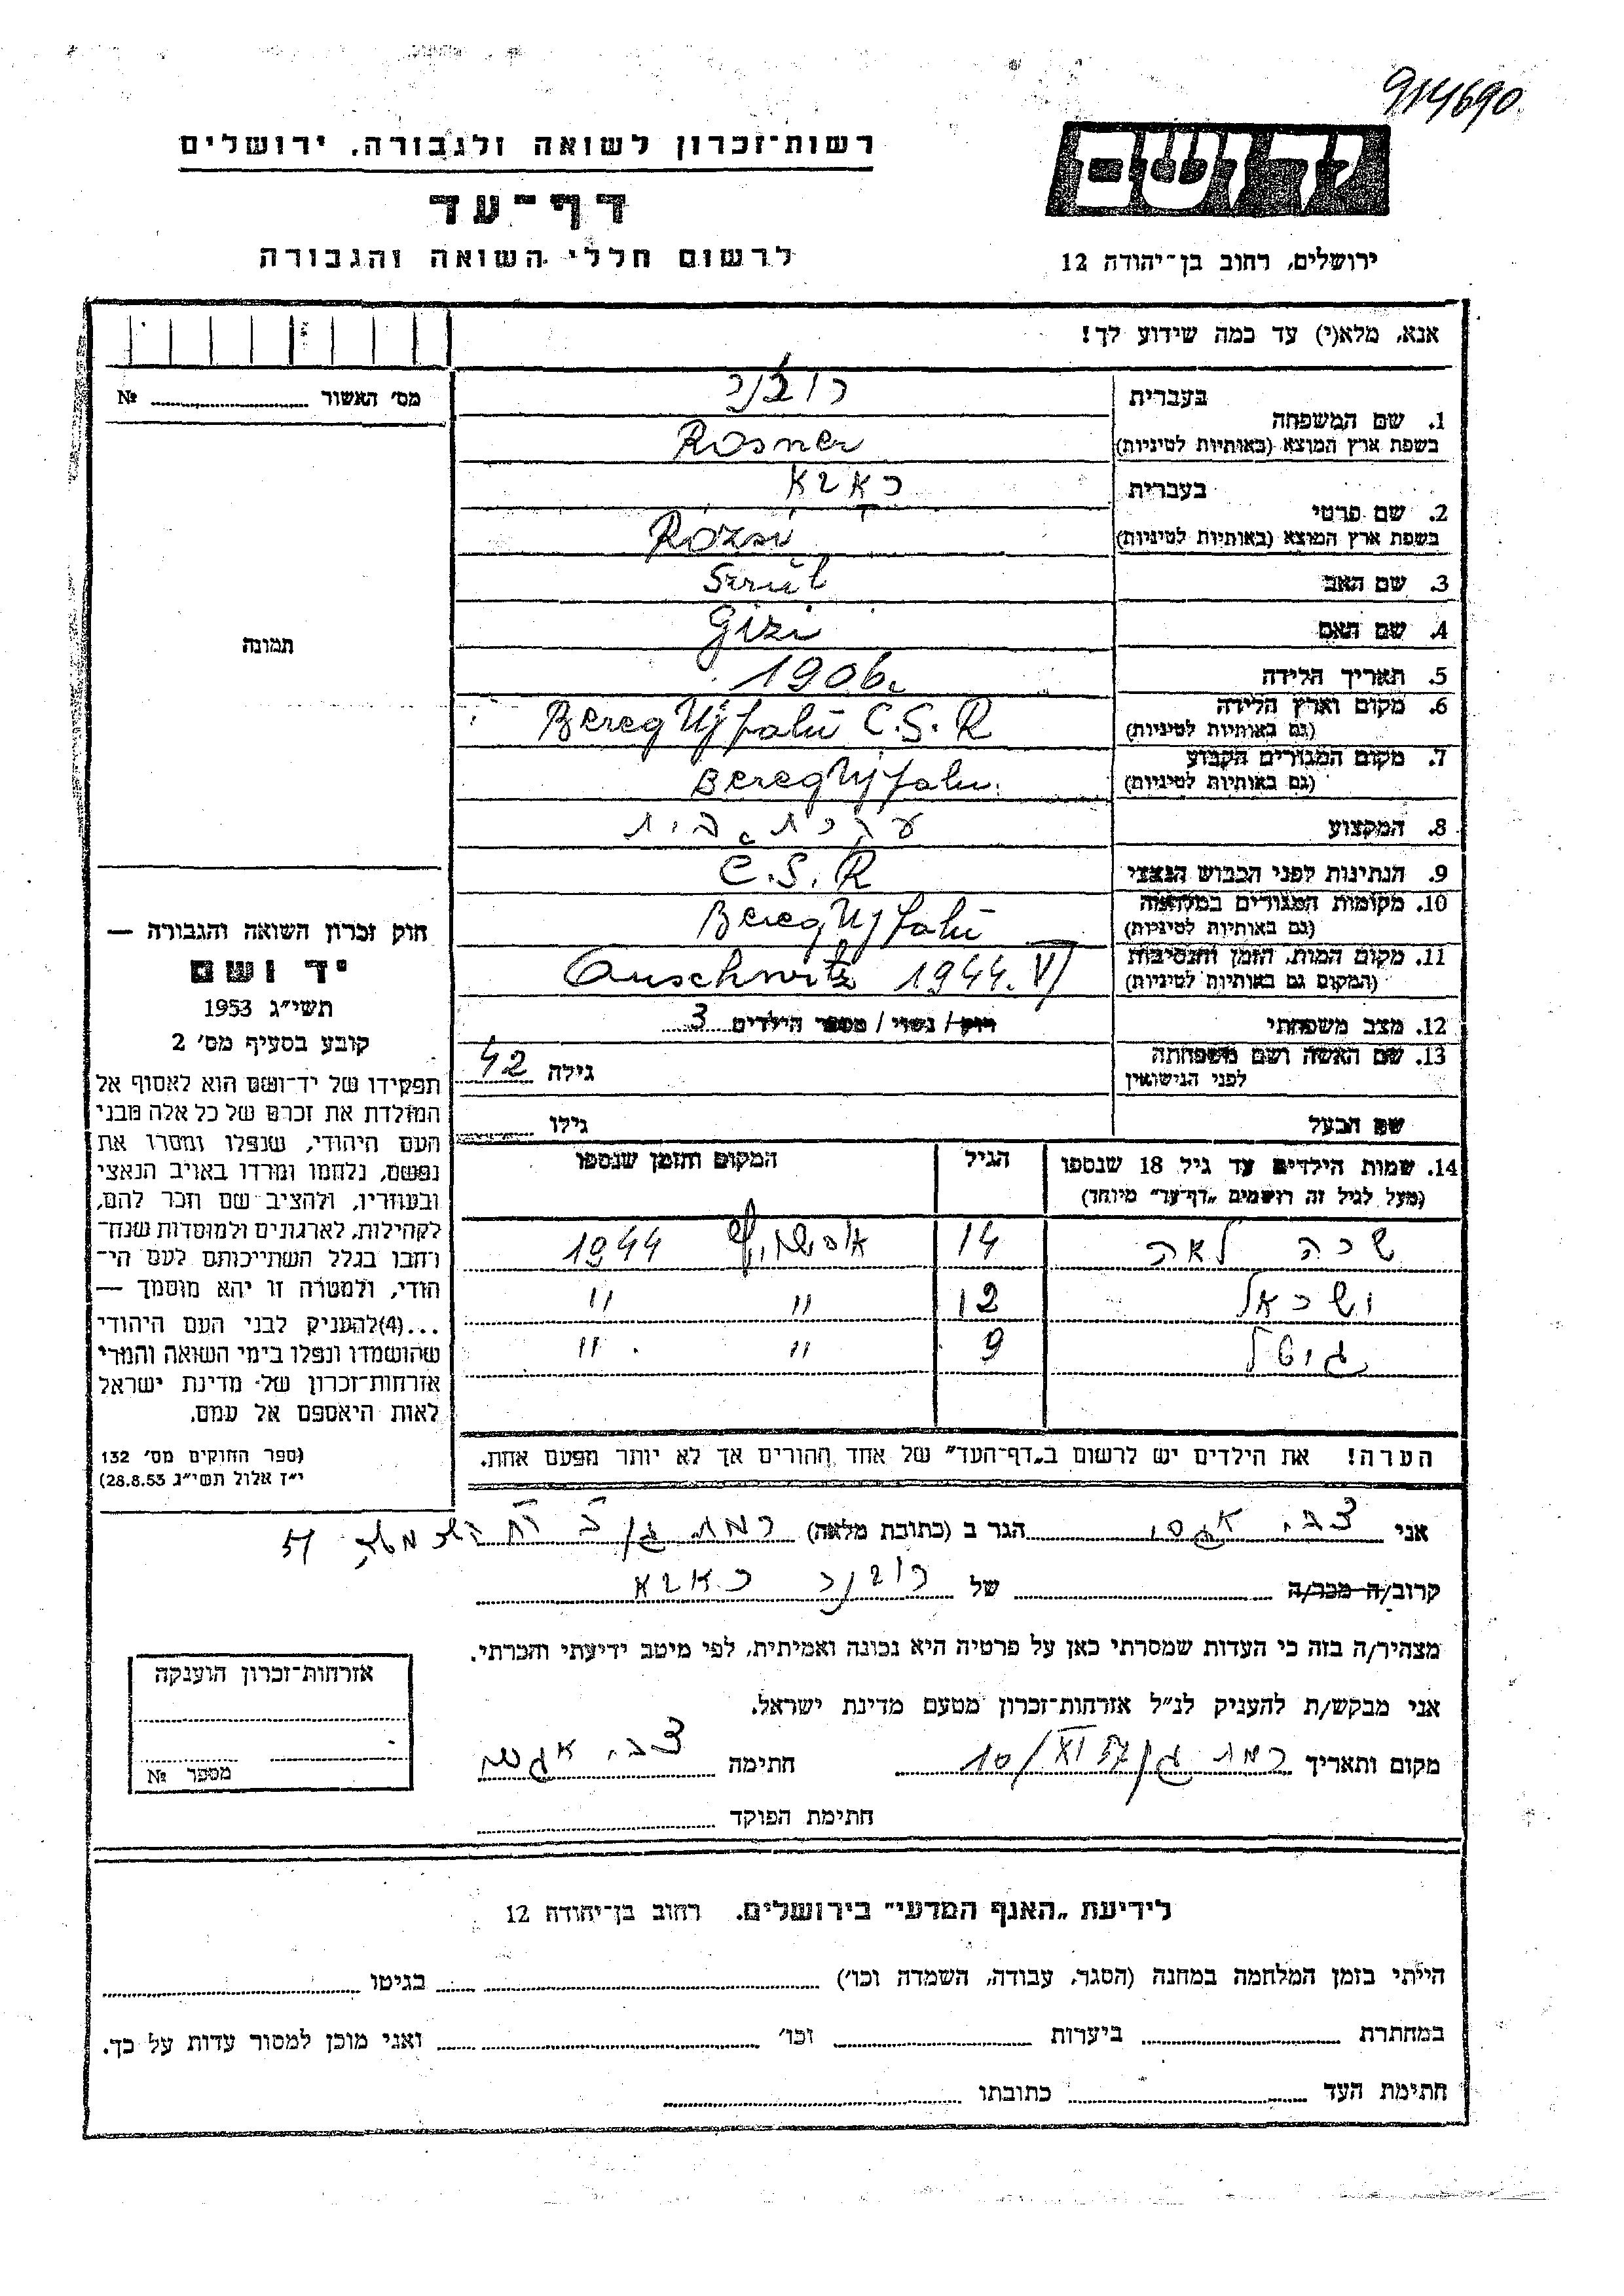 914690
רשות־זכרון לשואה ולגבורה, ירושלים
דף־עד
לרשום חללי השואה והגבורה
יד ושם
ירושלים, רחוב בן־יהודה 12
אנא, מלא(י) עד כמה שידוע לך!
מס׳ האשור № 
תמונה
חוק זכרון השואה והגבורה —
יד ושם
תשי״ג 1953
קובע בסעיף מס׳ 2
תפקידו של יד־ושם הוא לאסוף אל
המולדת את זכרם של כל אלה מבני
העם היהודי, שנפלו ומסרו את
נפשם, נלחמו ומרדו באויב הנאצי
ובעוזריו, ולהציב שם וזכר להם,
לקהילות, לארגונים ולמוסדות שנח־
רבו בגלל השתייכותם לעם הי־
הודי, ולמטרה זו יהא מוסמך —
...(4)להעניק לבני העם היהודי
שהושמדו ונפלו בימי השואה והמרי
אזרחות־זכרון של מדינת ישראל
לאות היאספם אל עמם.
(ספר החוקים מס׳ 132
י״ז אלול תשי״ג 28.8.53)
1. שם המשפחה
בעברית רוזנר
בשפת ארץ המוצא (באותיות לטיניות) Rosner
2. שם פרטי
בעברית
בשפת ארץ המוצא (באותיות לטיניות) Rózsi
3. שם האב Szrul
4. שם האם Gizi
5. תאריך הלידה 1906.
6. מקום וארץ הלידה Bereg Ujfalu C.S.R
(גם באותיות לטיניות)
7. מקום המגורים הקבוע Bereg Ujfalu.
(גם באותיות לטיניות)
8. המקצוע עקרת בית
9. הנתינות לפני הכבוש הנאצי C.S.R
10. מקומות המגורים במלחמה Bereg Ujfalu
(גם באותיות לטיניות)
11. מקום המות, הזמן והנסיבות Auschwitz 1944. VI
(המקום גם באותיות לטיניות)
12. מצב משפחתי רוק/ נשוי / מספר הילדים 3
13. שם האשה ושם משפחתה גילה 42
לפני הנישואין
שם הבעל גילו
14. שמות הילדים עד גיל 18 שנספו הגיל המקום והזמן שנספו
(מעל לגיל זה רושמים „דף־עד״ מיוחד)
שרה לאה 14 1944
ישראל 12 " "
גיטל 9 " "
הערה! את הילדים יש לרשום ב„דף־העד״ של אחד ההורים אך לא יותר מפעם אחת.
אני צבי הגר ב (כתובת מלאה) רמת גן
קרוב/ה מכר/ה של רוזנר
מצהיר/ה בזה כי העדות שמסרתי כאן על פרטיה היא נכונה ואמיתית, לפי מיטב ידיעתי והכרתי.
אני מבקש/ת להעניק לנ״ל אזרחות־זכרון מטעם מדינת ישראל.
מקום ותאריך רמת גן 10/XI 57 חתימה צבי
חתימת הפוקד
אזרחות־זכרון הוענקה
מספר №
לידיעת „האגף המדעי״ בירושלים, רחוב בן־יהודה 12
הייתי בזמן המלחמה במחנה (הסגר, עבודה, השמדה וכו׳) בגיטו
במחתרת ביערות וכו׳ ואני מוכן למסור עדות על כך.
חתימת העד כתובתו